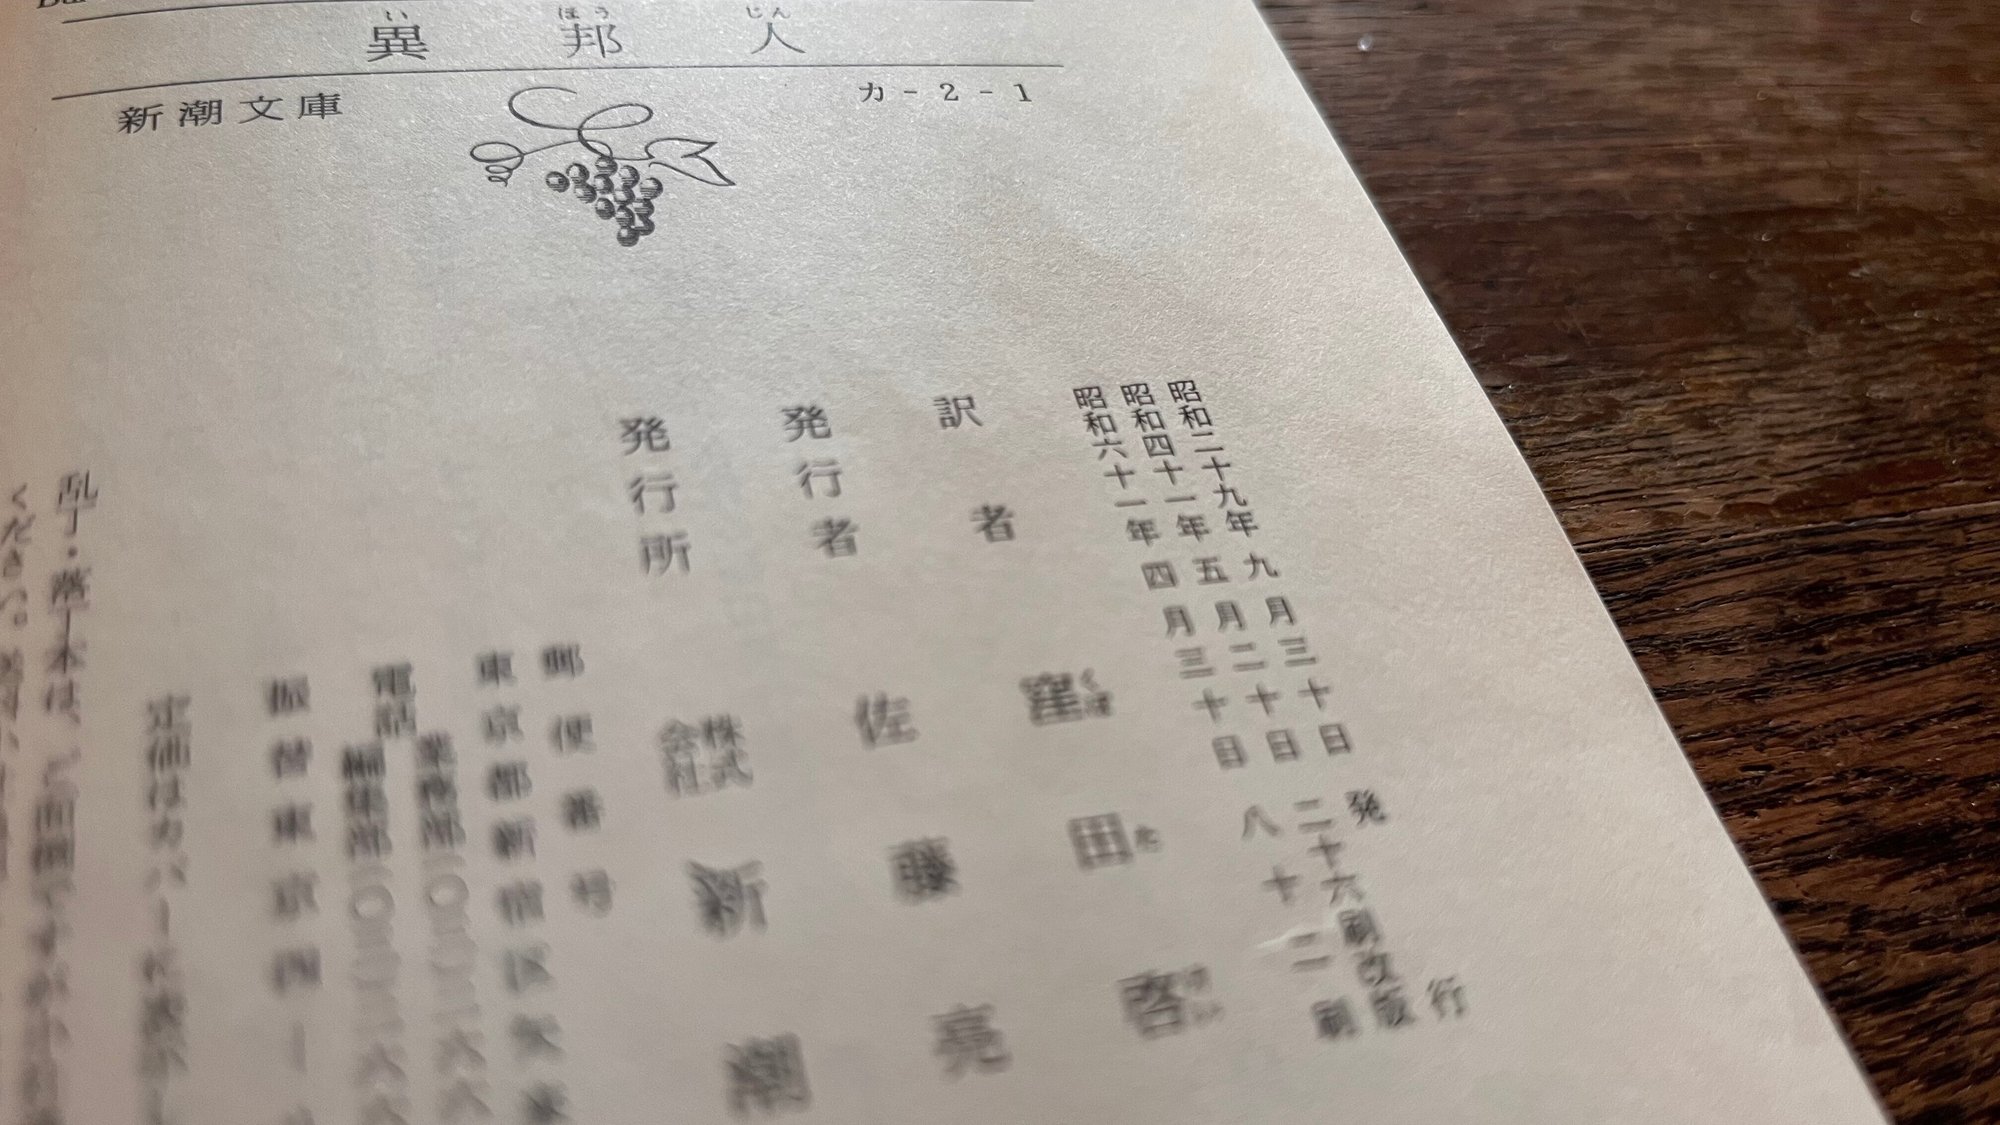 異邦人
いほうじん
新潮文庫
カ-2-1
昭和二十九年九月三十日発行
昭和四十一年五月二十日二十六刷改版
昭和六十一年四月三十日八十二刷
訳者 窪田啓
くぼた けい
発行者 佐藤亮
発行所 株式会社 新潮
郵便番号
東京都新宿区矢来
電話 業務部(〇三)二六六
編集部(〇三)二六六
振替東京四—
定価はカバーに表示し
乱丁・落丁本は、ご面倒ですが小社
ください。